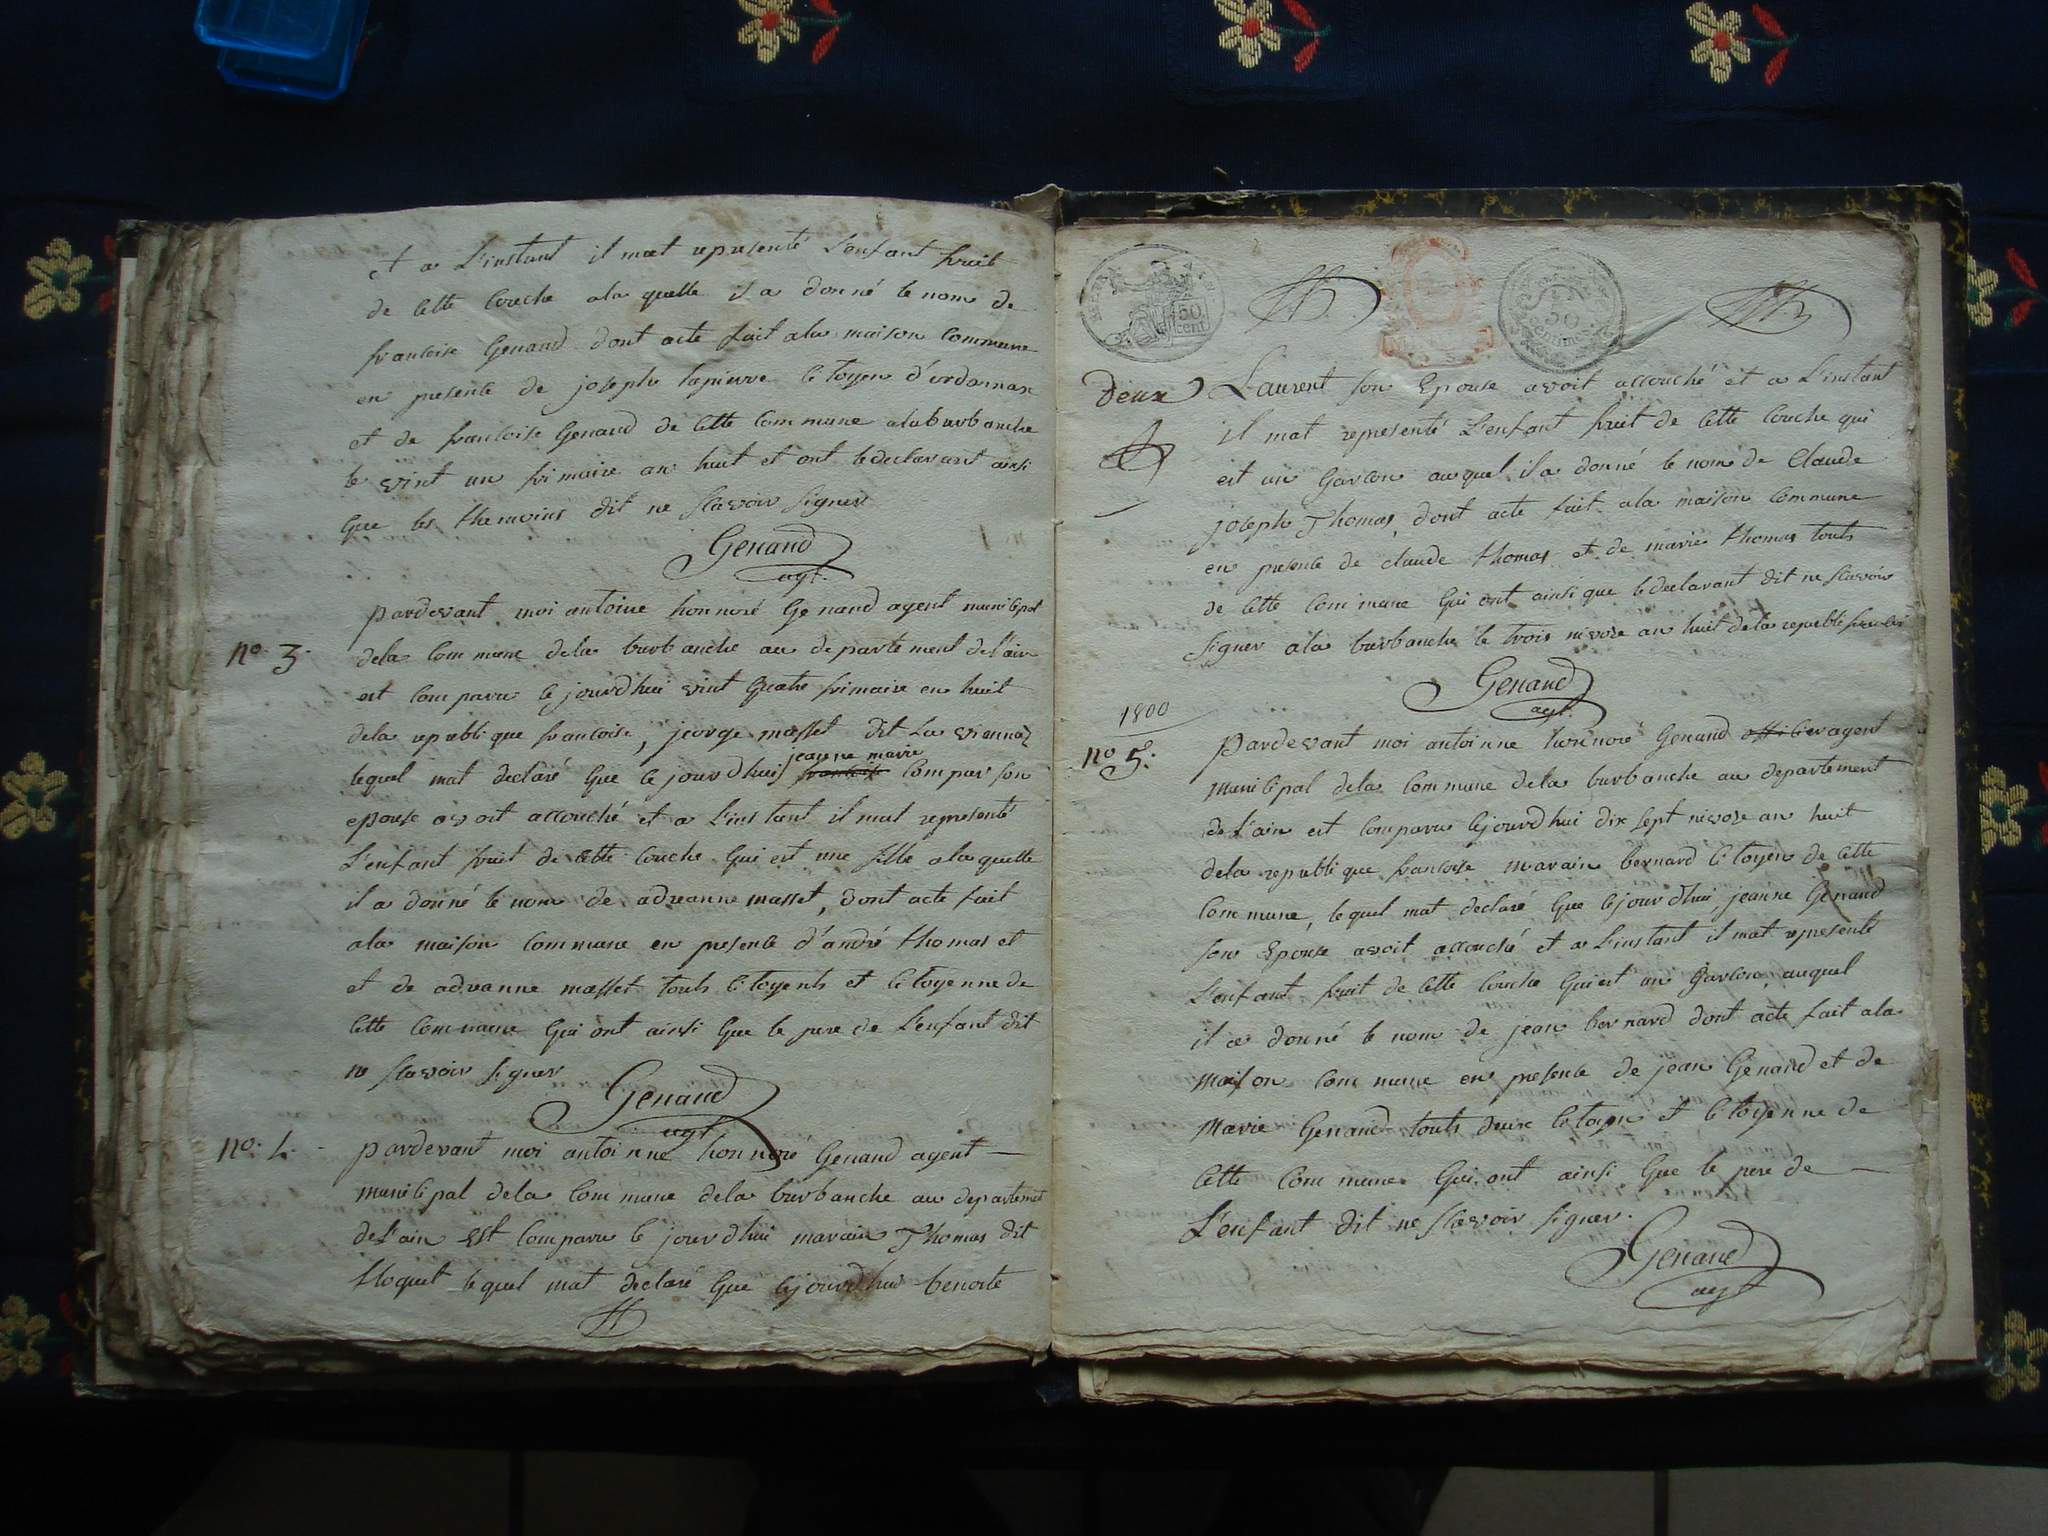 et a L'instant il mat representé L'enfant fruit
de cette couche ala quelle il a donné le nom de
francoise Genand dont acte fait ala maison commune
en presence de joseph lapierre citoyen d'ordonnax
et de francoise Genand de cette commune alaburbanche
le vint un frimaire an huit et ont le declarant ainsi
que les themoins dit ne scavoir signer
Genand
agt.
no. 3.
pardevant moi antoine honnoré Genand agent municipal
dela commune dela burbanche au departement del'ain
est comparu ce jourdhui vint quatre frimaire en huit
dela republi que francoise, jeorge masset dit La viennaz
jeanne marie
lequel mat declaré que ce jourdhui francoise compar son
epouse avoit accouché et a L'instant il mat representé
L'enfant fruit de cette couche qui est une fille ala quelle
il a donné le nom de adreanne masset, dont acte fait
ala maison commune en presence d'andré thomas et
et de adreanne masset touts citoyents et citoyenne de
cette commune qui ont ainsi que le pere de L'enfant dit
ne scavoir signer
Genand
agt
no. 4. -
pardevant moi antoinne honnoré Genand agent
municipal dela commune dela burbanche au departement
deL'ain est comparu ce jourdhui marain Thomas dit
le quel mat declaré que cejourdhui benoite
1800
Deux
Laurent son Epouse avoit accouché et a L'instant
il mat representé L'enfant fruit de cette couche qui
est un Garcon au quel il a donné le nom de Claude
joseph Thomas, dont acte fait ala maison commune
en presence de claude thomas et de marie thomas touts
de cette commune qui ont ainsi que le declarant dit ne scavoir
signer ala burbanche le trois nivose an huit dela republi francoise
Genand
agt.
no 5.
pardevant moi antoinne honnoré Genand officier agent
municipal dela commune dela burbanche au departement
de L'ain est comparu cejourdhui dix sept nivose an huit
dela republi que francoise marain bernard citoyen de cette
commune, le quel mat declaré que cejourdhui jeanne Genand
son Epouse avoit accouché et a L'instant il mat representé
L'enfant fruit de cette couche qui est un Garcon, auquel
il a donné le nom de jean bernard dont acte fait ala
maison commune en presence de jean Genand et de
Marie Genand touts deux citoyen et citoyenne de
cette commune qui ont ainsi que le pere de
L'enfant dit ne scavoir signer.
Genand
agt